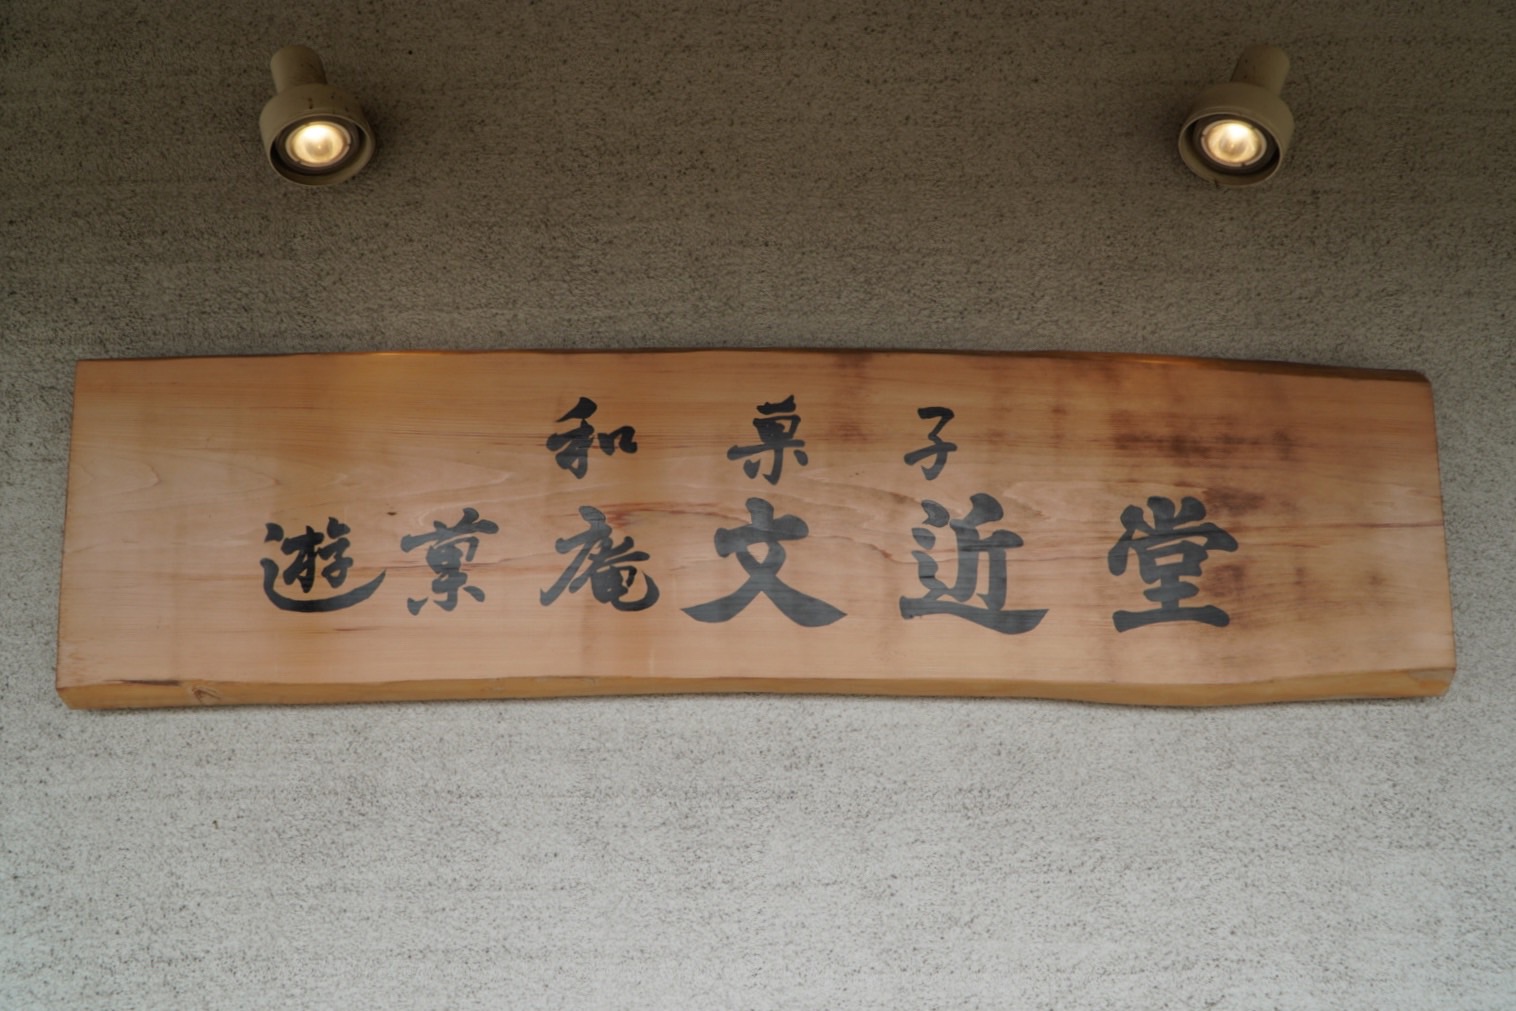 和菓子
遊菓庵文近堂